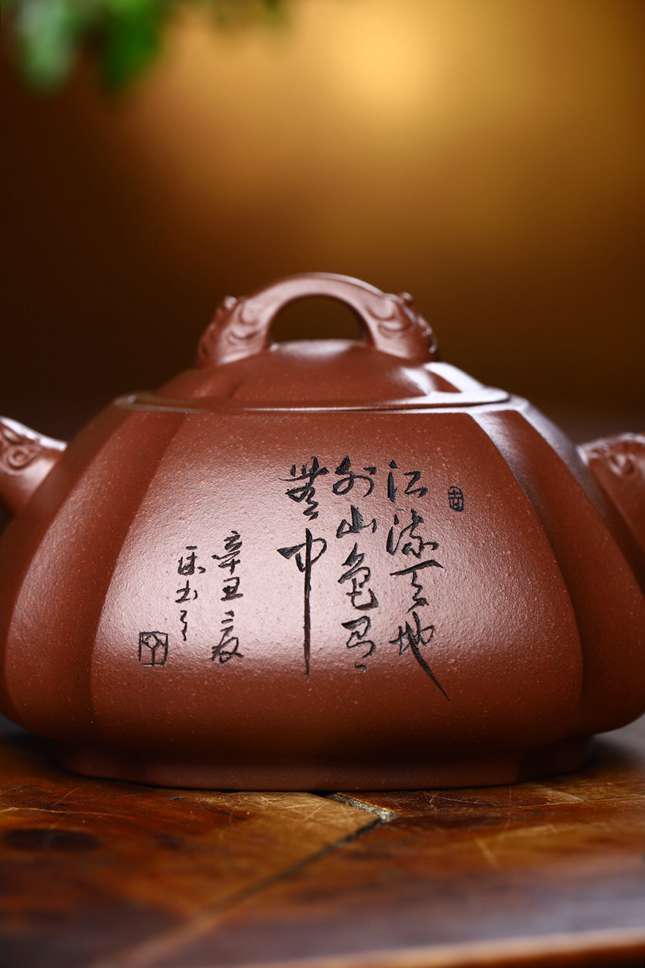 江流天地
外山色有
無中
辛丑